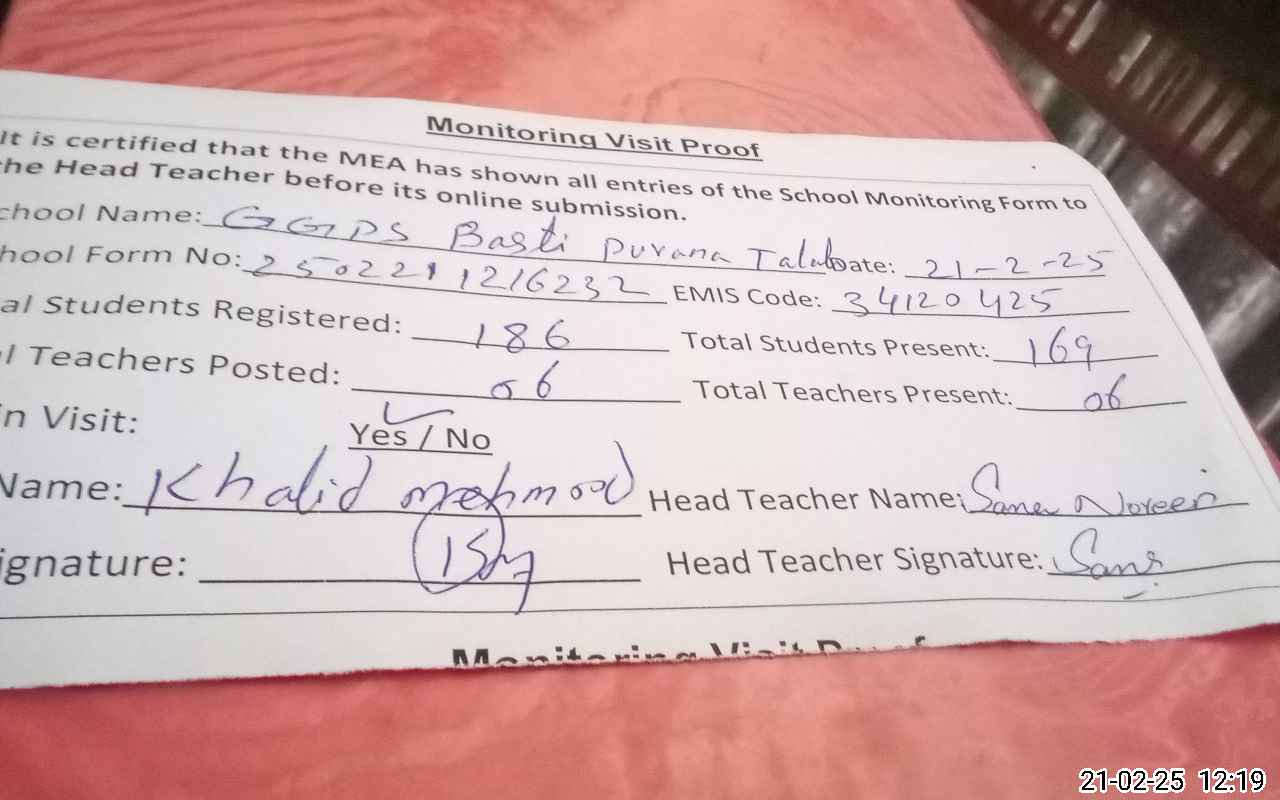 Monitoring Visit Proof
It is certified that the MEA has shown all entries of the School Monitoring Form to
the Head Teacher before its online submission.
chool Name: GGPS Basti Purana Talab Date: 21-2-25
hool Form No: 2502211216232 EMIS Code: 34120425
al Students Registered: 186 Total Students Present: 169
l Teachers Posted: 06 Total Teachers Present: 06
n Visit: Yes / No
Name: Khalid mehmood Head Teacher Name: Sana Noreen
ignature: Head Teacher Signature: Sana
Monitoring Visit Proof
21-02-25 12:19